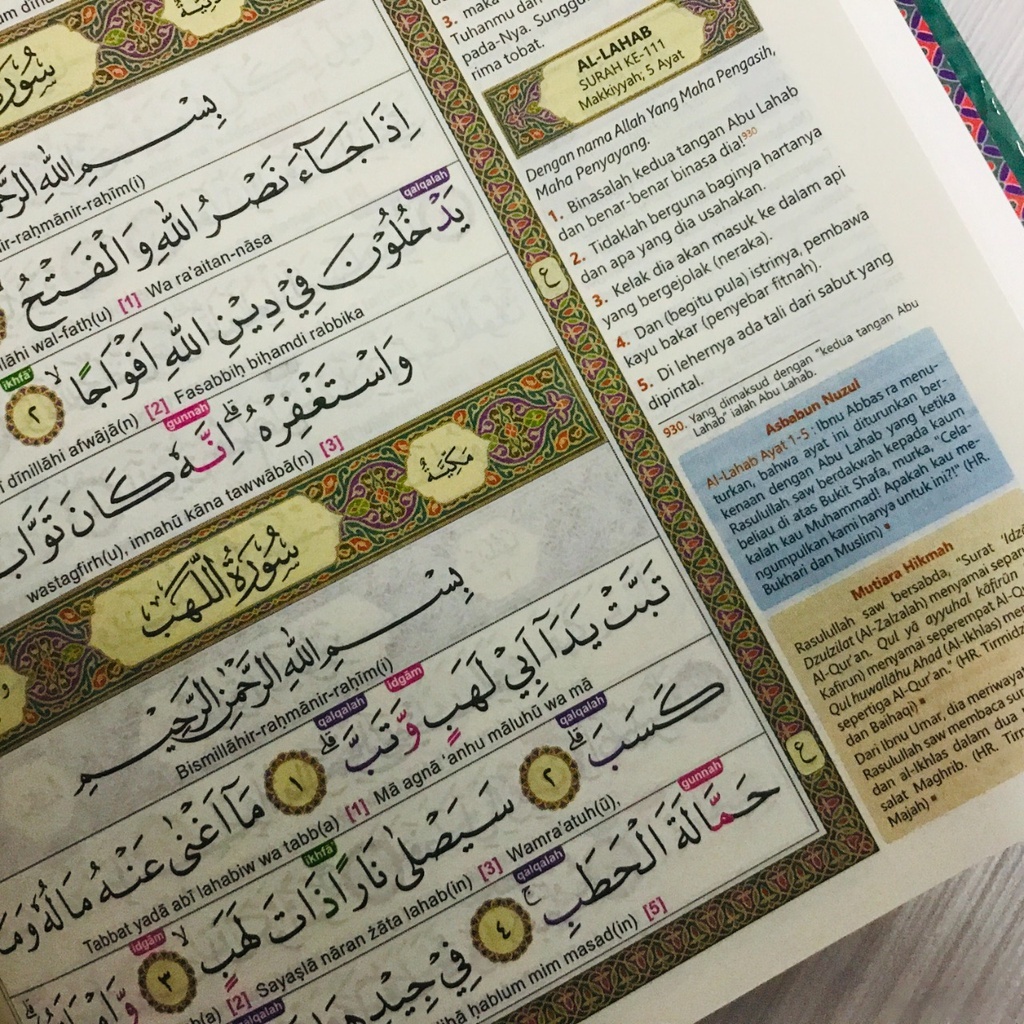 سُوْرَ
بِسْــــمِ اللهِ الرَّحْ
ir-raḥmānir-raḥīm(i)
اِذَا جَاۤءَ نَصْرُ اللّٰهِ وَالْفَتْحُ
llāhi wal-fatḥ(u) [1] Wa ra'aitan-nāsa
qalqalah
يَدْخُلُوْنَ فِيْ دِيْنِ اللّٰهِ اَفْوَاجًا ۙ ٢
ikhfā
ī dīnillāhi afwājā(n) [2] Fasabbiḥ biḥamdi rabbika
gunnah
وَاسْتَغْفِرْهُ ۗ اِنَّهٗ كَانَ تَوَّاب
wastagfirh(u), innahū kāna tawwābā(n) [3]
مَكِّيَّةٌ
سُوْرَةُ اللَّهَبِ
بِسْــــمِ اللهِ الرَّحْمٰنِ الرَّحِيْمِ
Bismillāhir-raḥmānir-raḥīm(i)
idgām
qalqalah
تَبَّتْ يَدَآ اَبِيْ لَهَبٍ وَّتَبَّ ۗ ١ مَآ اَغْنٰى عَنْهُ مَالُهٗ وَمَا
Tabbat yadā abī lahabiw wa tabb(a) [1] Mā agnā 'anhu māluhū wa mā
qalqalah
كَسَبَ ۗ ٢ سَيَصْلٰى نَارًا ذَاتَ لَهَبٍ ۙ ٣
ikhfā
idgām
b(a) [2] Sayaṣlā nāran żāta lahab(in) [3] Wamra'atuh(ū),
gunnah
qalqalah
حَمَّالَةَ الْحَطَبِ ۚ ٤ فِيْ جِيْدِهَا
qalqalah
ihā ḥablum mim masad(in) [5]
ع
ع
3. maka
Tuhanmu dan
pada-Nya. Sunggu
rima tobat.
AL-LAHAB
SURAH KE-111
Makkiyyah; 5 Ayat
Dengan nama Allah Yang Maha Pengasih,
Maha Penyayang.
1. Binasalah kedua tangan Abu Lahab
dan benar-benar binasa dia!930
2. Tidaklah berguna baginya hartanya
dan apa yang dia usahakan.
3. Kelak dia akan masuk ke dalam api
yang bergejolak (neraka).
4. Dan (begitu pula) istrinya, pembawa
kayu bakar (penyebar fitnah).
5. Di lehernya ada tali dari sabut yang
dipintal.
930. Yang dimaksud dengan "kedua tangan Abu
Lahab" ialah Abu Lahab.
Asbabun Nuzul
Al-Lahab Ayat 1-5 : Ibnu Abbas ra menu-
turkan, bahwa ayat ini diturunkan ber-
kenaan dengan Abu Lahab yang ketika
Rasulullah saw berdakwah kepada kaum
beliau di atas Bukit Shafa, murka, "Cela-
kalah kau Muhammad! Apakah kau me-
ngumpulkan kami hanya untuk ini?!" (HR.
Bukhari dan Muslim)
Mutiara Hikmah
Rasulullah saw bersabda, "Surat 'Idzâ
Dzulzilat (Al-Zalzalah) menyamai separ
Al-Qur'an. Qul yâ ayyuhal kâfirûn
Kafirun) menyamai seperempat Al-Qu
Qul huwallâhu Ahad (Al-Ikhlas) men
sepertiga Al-Qur'an." (HR. Tirmidz
dan Baihaqi)
Dari Ibnu Umar, dia meriwayat
Rasulullah saw membaca sur
dan al-Ikhlas dalam dua
salat Maghrib. (HR. Tirm
Majah)